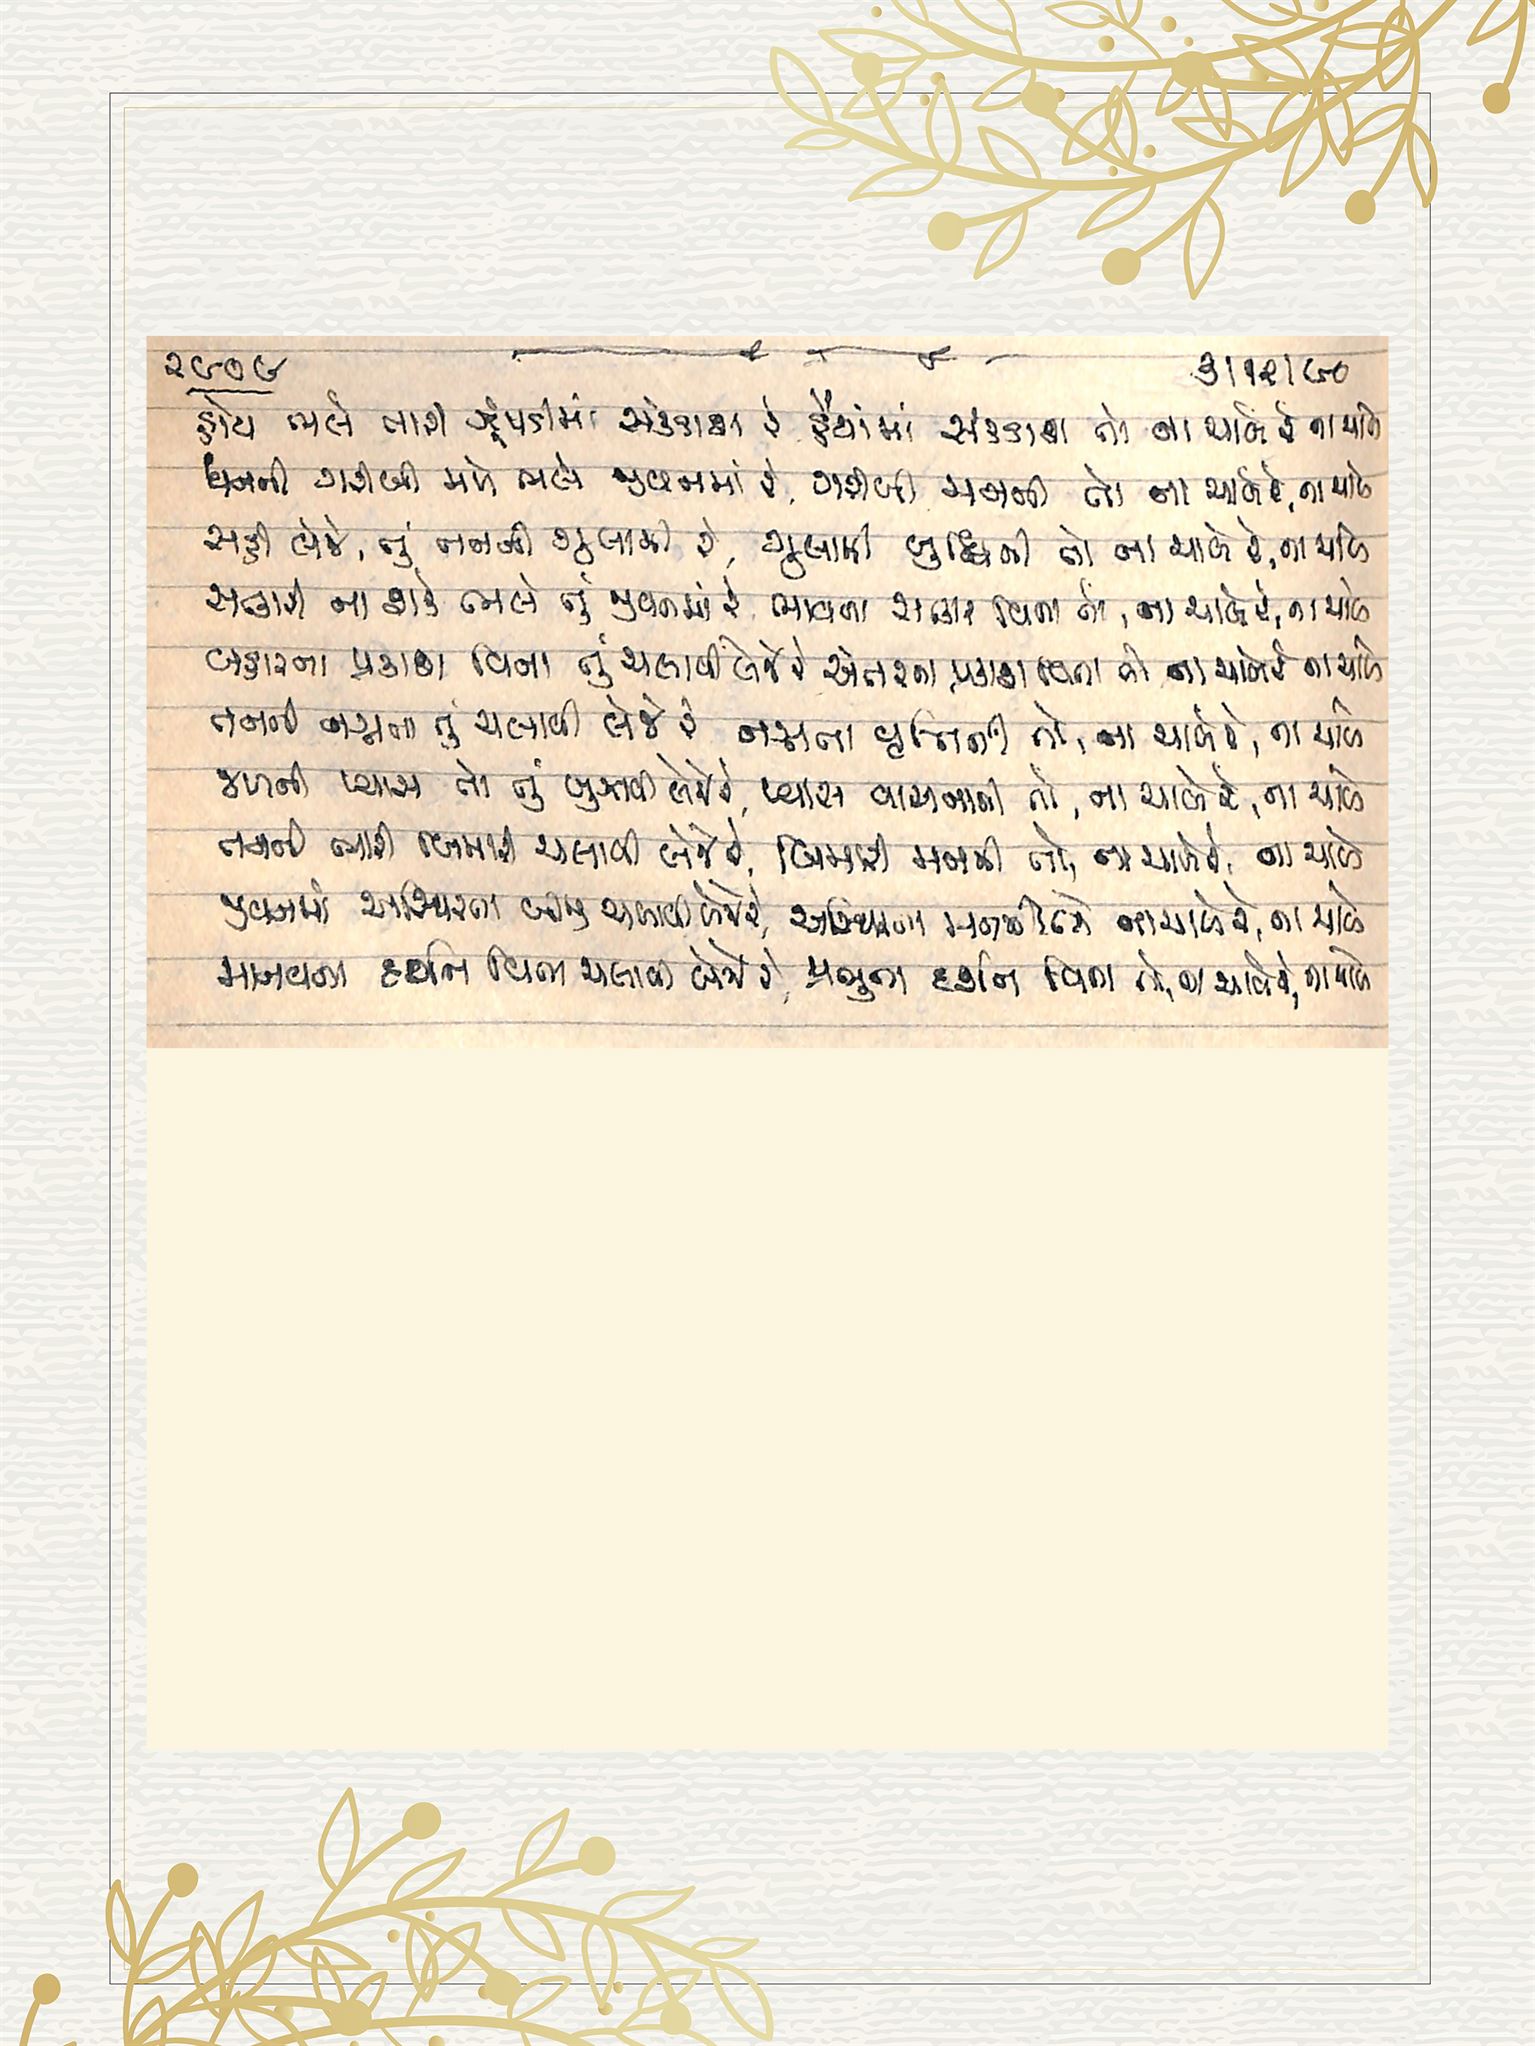 ૨૯૦૯ ૩/૧૨/૯૦
હોય ભલે તારી ઝૂંપડીમાં સંકડાશ રે હૈયાંમાં સંકડાશ તો ના ચાલે રે ના ચાલે
ધનની ગરીબી મળે ભલે જીવનમાં રે, ગરીબી મનની તો ના ચાલે રે, ના ચાલે
સહી લેજે, તું તનની ગુલામી રે, ગુલામી બુદ્ધિની તો ના ચાલે રે, ના ચાલે
સહારો ના શોધે ભલે તું જીવનમાં રે ભાવના સહાર વિના તો, ના ચાલે રે, ના ચાલે
બહારના પ્રકાશ વિના તું ચલાવી લેજે રે અંતરના પ્રકાશ વિના તો ના ચાલે રે ના ચાલે
તનની નગ્નતા તું ચલાવી લેજે રે નગ્નતા વૃત્તિની તો, ના ચાલે રે, ના ચાલે
જળની પ્યાસ તો તું બુઝાવી લેજે રે, પ્યાસ વાસનાની તો, ના ચાલે રે, ના ચાલે
તનની ભારી બિમારી ચલાવી લેજે રે, બિમારી મનની તો, ના ચાલે રે, ના ચાલે
જીવનમાં અસ્થિરતા બધી ચલાવી લેજે રે, અસ્થિરતા મનની તો ના ચાલે રે, ના ચાલે
માનવના દર્શન વિના ચલાવી લેજે રે, પ્રભુના દર્શન વિના તો, ના ચાલે રે, ના ચાલે